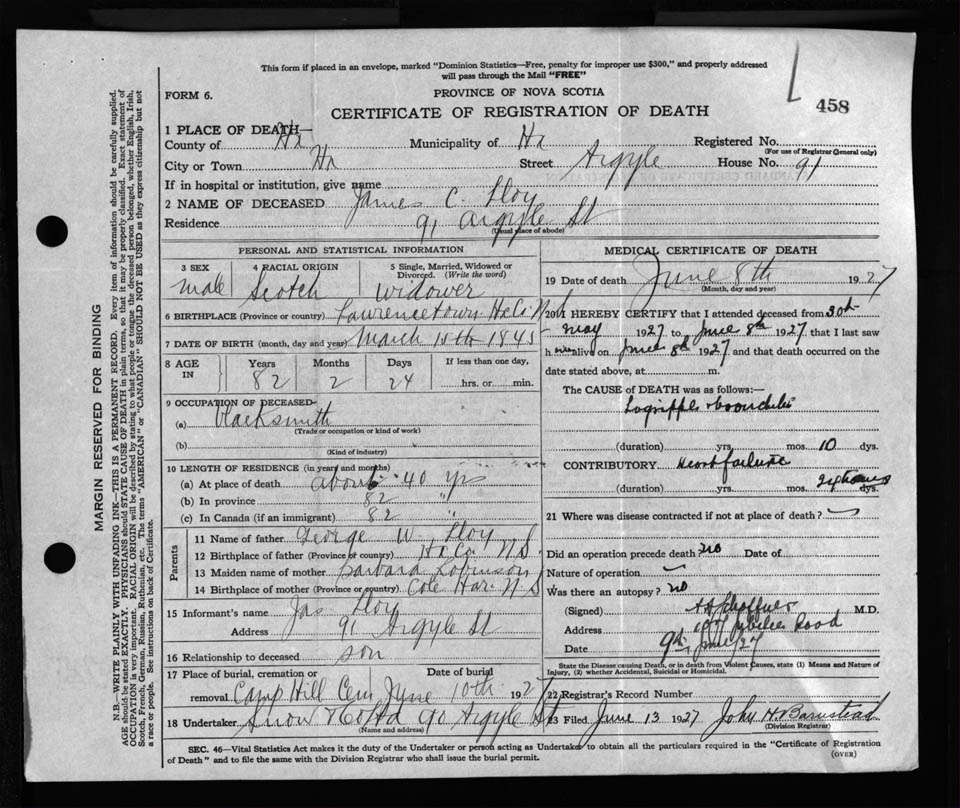 This form if placed in an envelope, marked "Dominion Statistics—Free, penalty for improper use $300," and properly addressed
will pass through the Mail "FREE"
458
FORM 6.
PROVINCE OF NOVA SCOTIA
CERTIFICATE OF REGISTRATION OF DEATH
1 PLACE OF DEATH—
County of Hx Municipality of Hx Registered No.
(For use of Registrar General only)
City or Town Hx Street Argyle House No. 91
If in hospital or institution, give name
2 NAME OF DECEASED James C. Lloy
Residence 91 Argyle St
(Usual place of abode)
PERSONAL AND STATISTICAL INFORMATION
3 SEX 4 RACIAL ORIGIN 5 Single, Married, Widowed or
Divorced. (Write the word)
male Scotch widower
6 BIRTHPLACE (Province or country) Lawrencetown
7 DATE OF BIRTH (month, day and year) March 15th 1845
8 AGE IN Years Months Days If less than one day,
82 2 24 hrs. or min.
9 OCCUPATION OF DECEASED
(a) blacksmith
(Trade or occupation or kind of work)
(b)
(Kind of industry)
10 LENGTH OF RESIDENCE (in years and months)
(a) At place of death about 40 yrs
(b) In province 82 "
(c) In Canada (if an immigrant) 82 "
Parents
11 Name of father George W. Lloy
12 Birthplace of father (Province or country) Hx Co. N.S.
13 Maiden name of mother Barbara Robinson
14 Birthplace of mother (Province or country) Cole Har. N.S
15 Informant's name Jas Lloy
Address 91 Argyle St
16 Relationship to deceased son
17 Place of burial, cremation or Date of burial
removal Camp Hill Cem June 10th 1927
18 Undertaker Snow & Co Ltd 90 Argyle St
(Name and address)
MEDICAL CERTIFICATE OF DEATH
19 Date of death June 8th 1927
(Month, day and year)
20 I HEREBY CERTIFY that I attended deceased from 30th
May 1927 to June 8th 1927 that I last saw
him alive on June 8th 1927 and that death occurred on the
date stated above, at m.
The CAUSE of DEATH was as follows:—
Lagrippe & bronchitis
(duration) yrs. mos. 10 dys.
CONTRIBUTORY Heart failure
(duration) yrs. mos. dys.
21 Where was disease contracted if not at place of death?
Did an operation precede death? no Date of
Nature of operation
Was there an autopsy? no
(Signed) M.D.
Address 107 Jubilee Road
Date 9th June/27
State the Disease causing Death, or in death from Violent Causes, state (1) Means and Nature of
Injury, (2) whether Accidental, Suicidal or Homicidal.
22 Registrar's Record Number
23 Filed June 13 1927 John H Barnstead
(Division Registrar)
SEC. 46—Vital Statistics Act makes it the duty of the Undertaker or person acting as Undertaker to obtain all the particulars required in the "Certificate of Registration
of Death" and to file the same with the Division Registrar who shall issue the burial permit.
(OVER)
MARGIN RESERVED FOR BINDING
N.B.—WRITE PLAINLY WITH UNFADING INK—THIS IS A PERMANENT RECORD. Every item of information should be carefully supplied.
AGE should be stated EXACTLY. PHYSICIANS should STATE CAUSE OF DEATH in plain terms, so that it may be properly classified. Exact statement of
OCCUPATION is very important. RACIAL ORIGIN will be described by stating to what people or tongue the deceased person belonged, whether English, Irish,
Scotch, French, German, Russian, Ruthenian, etc. The terms "AMERICAN" or "CANADIAN" SHOULD NOT BE USED as they express citizenship but not
a race or people. See instructions on back of Certificate.